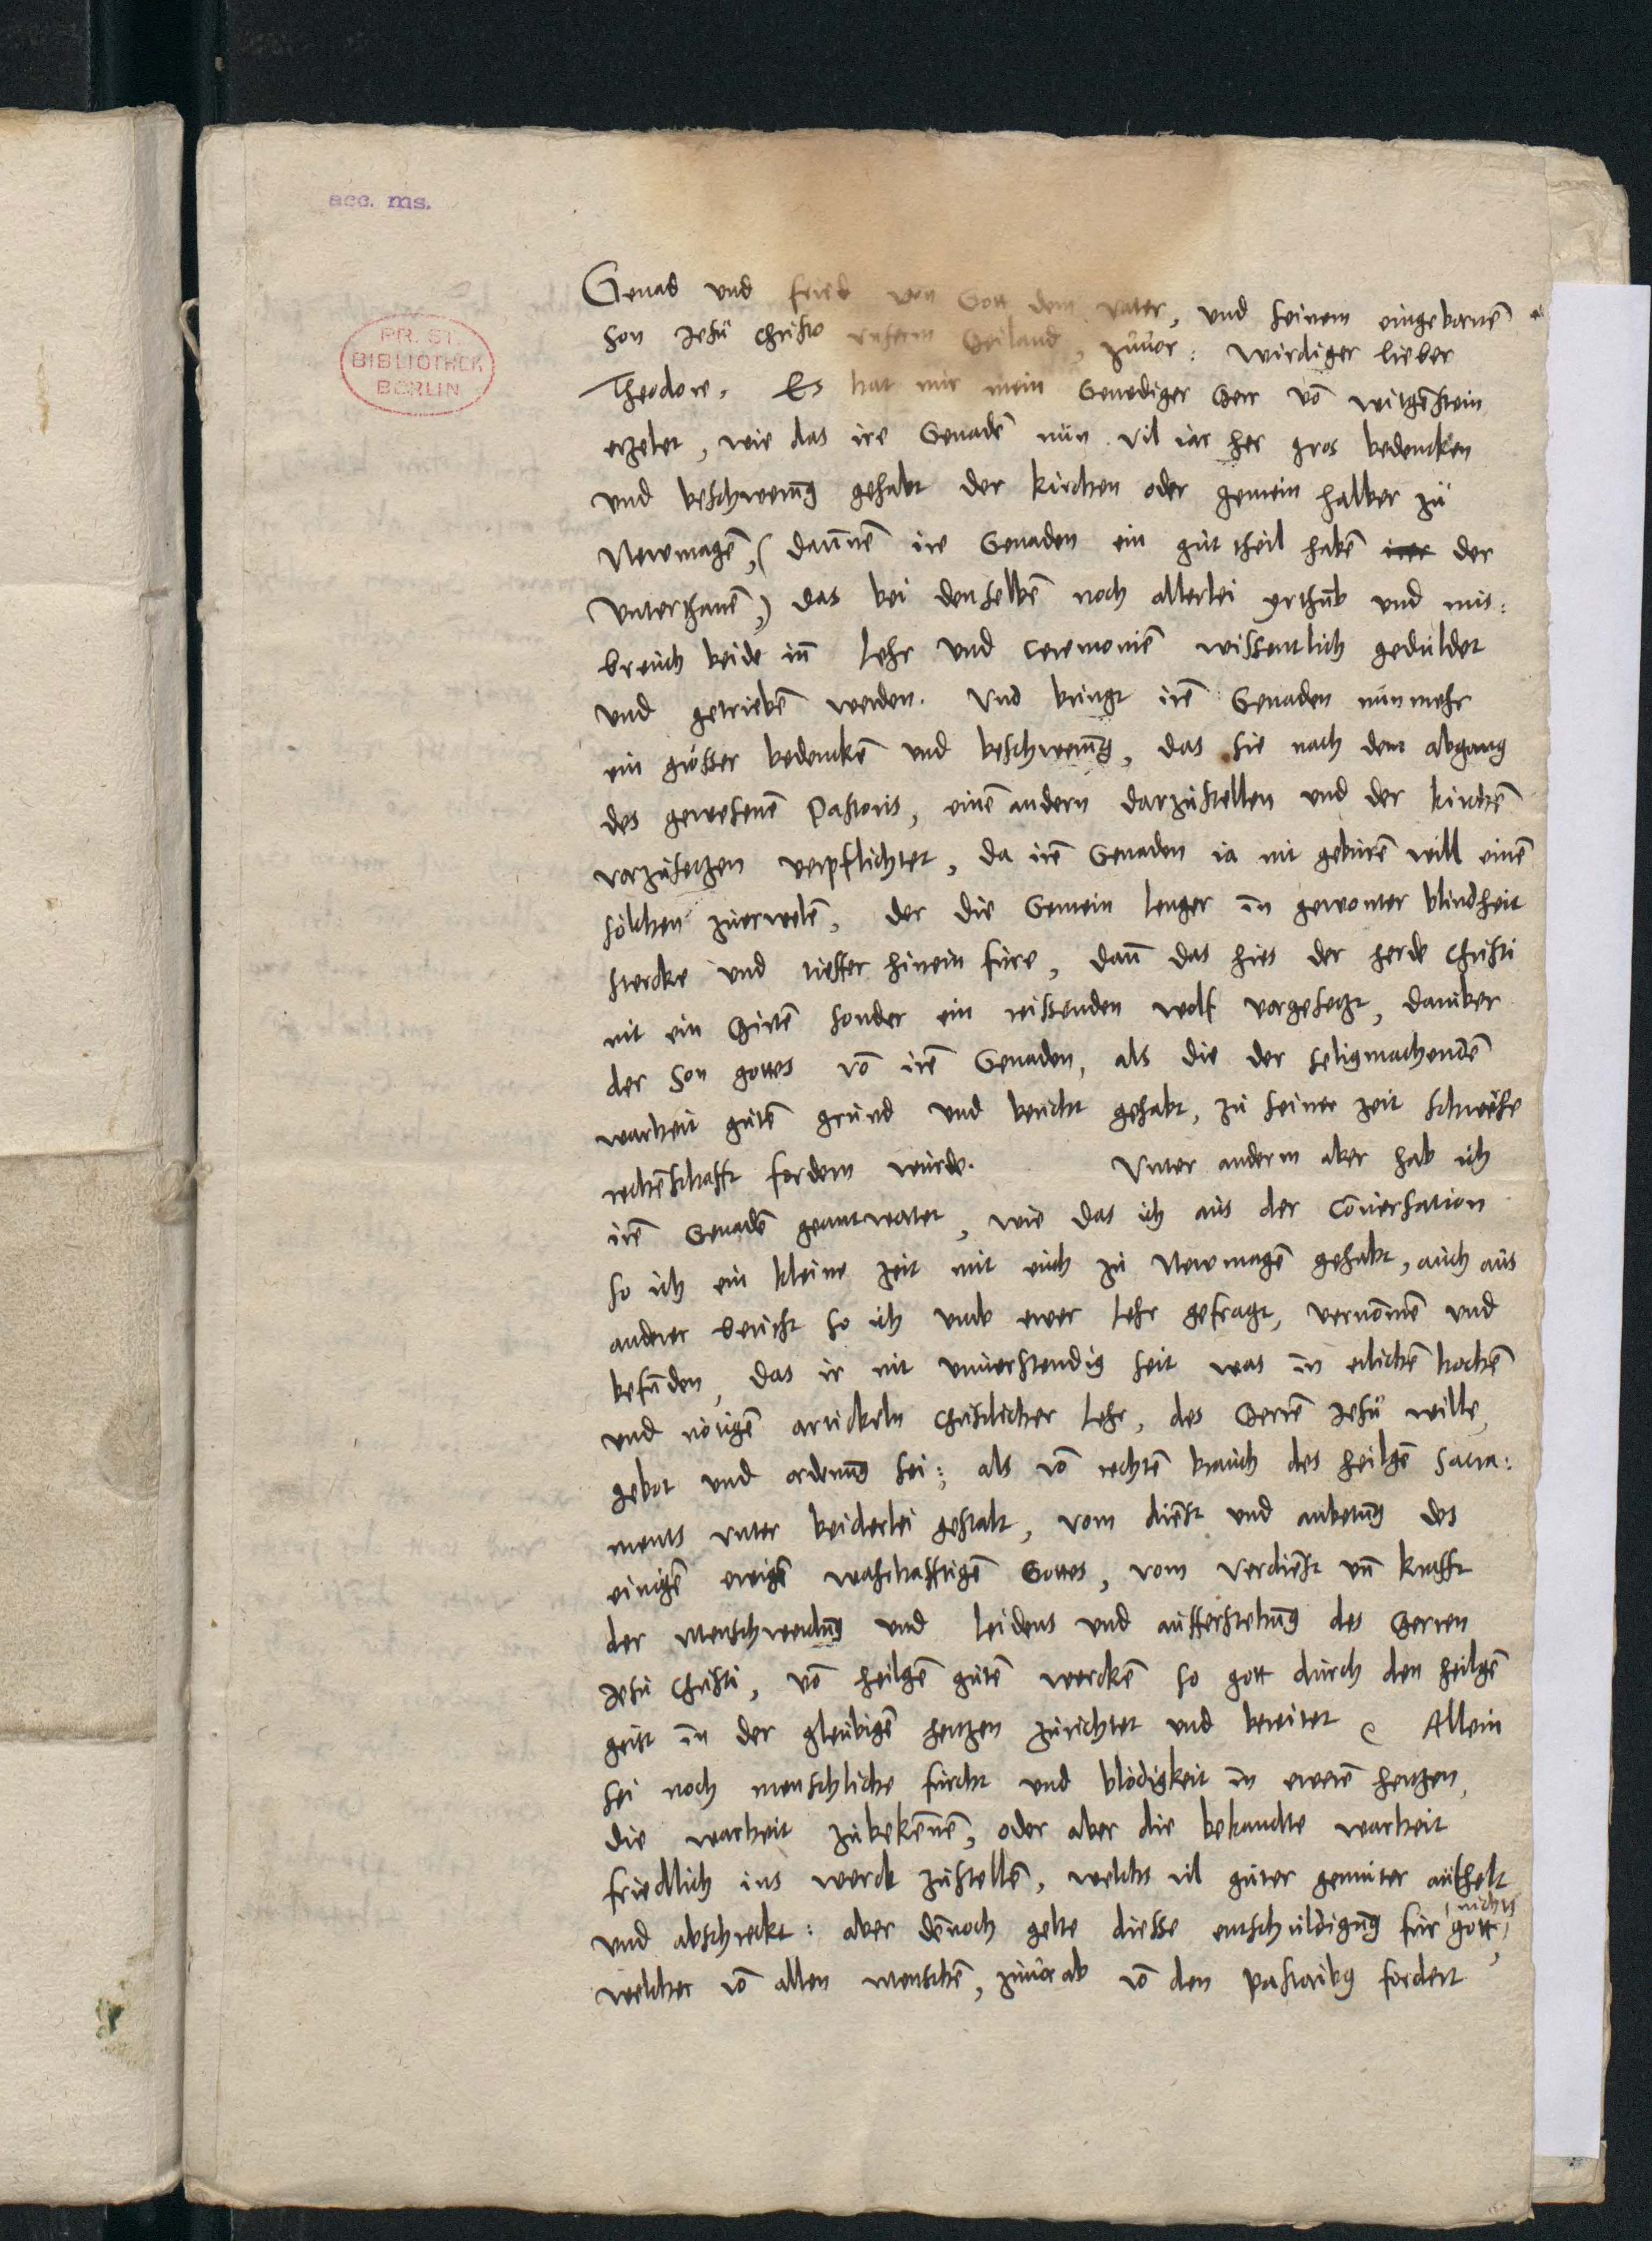 acc. ms.
PR. ST.
BIBLIOTHEK
BERLIN
Genad und fried von Gott dem vater, und seinem eingebornē
son Jesu Christo unserm Heiland, zuuor: wirdiger lieber
Theodore. Es hat mir mein Genediger Herr vō witgēstein
erzelet, wie das ire Genadē nun vil iar her gros bedencken
und beschwerūg gehabt der kirchen oder gemein halber zu
Newmagē, (daruñē ire Genaden ein gut theil habē irer der
unterthanē,) das bei denselbē noch allerlei yrthūb und mis:
breuch beide iñ Lehr und Ceremoniē wissentlich geduldet
und getriebē werden. Und bringt irē Genaden nunmehr
ein grösser bedenckē und beschwerūg, das sie nach dem abgang
des gewesenē Pastoris, einē andern darzustellen und der kirchē
vorzusetzen verpflichtet, da irē Genaden ia nit geburē will einē
solchen zuerwelē, der die Gemein lenger in gewonter blindheit
stercke und tieffer hinein fure, dañ das hies der herde Christi
nit ein Hirtē sonder ein reissenden wolf vorgesetzt, daruber
der son gottes vō irē Genaden, als die der seligmachendē
warheit gutē grund und bericht gehabt, zu seiner zeit schwere
rechēschafft fordern wurde. Unter anderm aber hab ich
irē Genadē geantwortet, wie das ich aus der Cōuersation
so ich ein kleine zeit mit euch zu Newmagē gehabt, auch aus
anderer bericht so ich umb ewer lehr gefragt, vernōmē und
befūden, das ir nit unuerstendig seit was in etlichē hochē
und nötigē artickeln christlicher lehr, des Herrē Jesu wille,
gebot und ordenūg sei: als vō rechtē brauch des heilgē Sacra:
ments unter beiderlei gestalt, vom diēst und anbetūg des
einigē ewigē wahrhafftigē Gottes, vom verdiēst uñ krafft
der menschwerdūg und leidens und aufferstehūg des Herren
Jesu Christi, vō heilgē gutē werckē so gott durch den heilgē
geist in der gleubigē hertzen zurichtet und bereitet. Allein
sei noch menschliche furcht und blödigkeit in ewerē hertzen,
die warheit zubekeñē, oder aber die bekandte warheit
friedlich ins werck zustellē, welchs vil guter gemuter aufhelt
und abschreckt: aber dēnoch gelte diesse entschuldigūg fur gott nichts,
welcher vō allen menschē, zuuor ab vō den pastoribus fordert